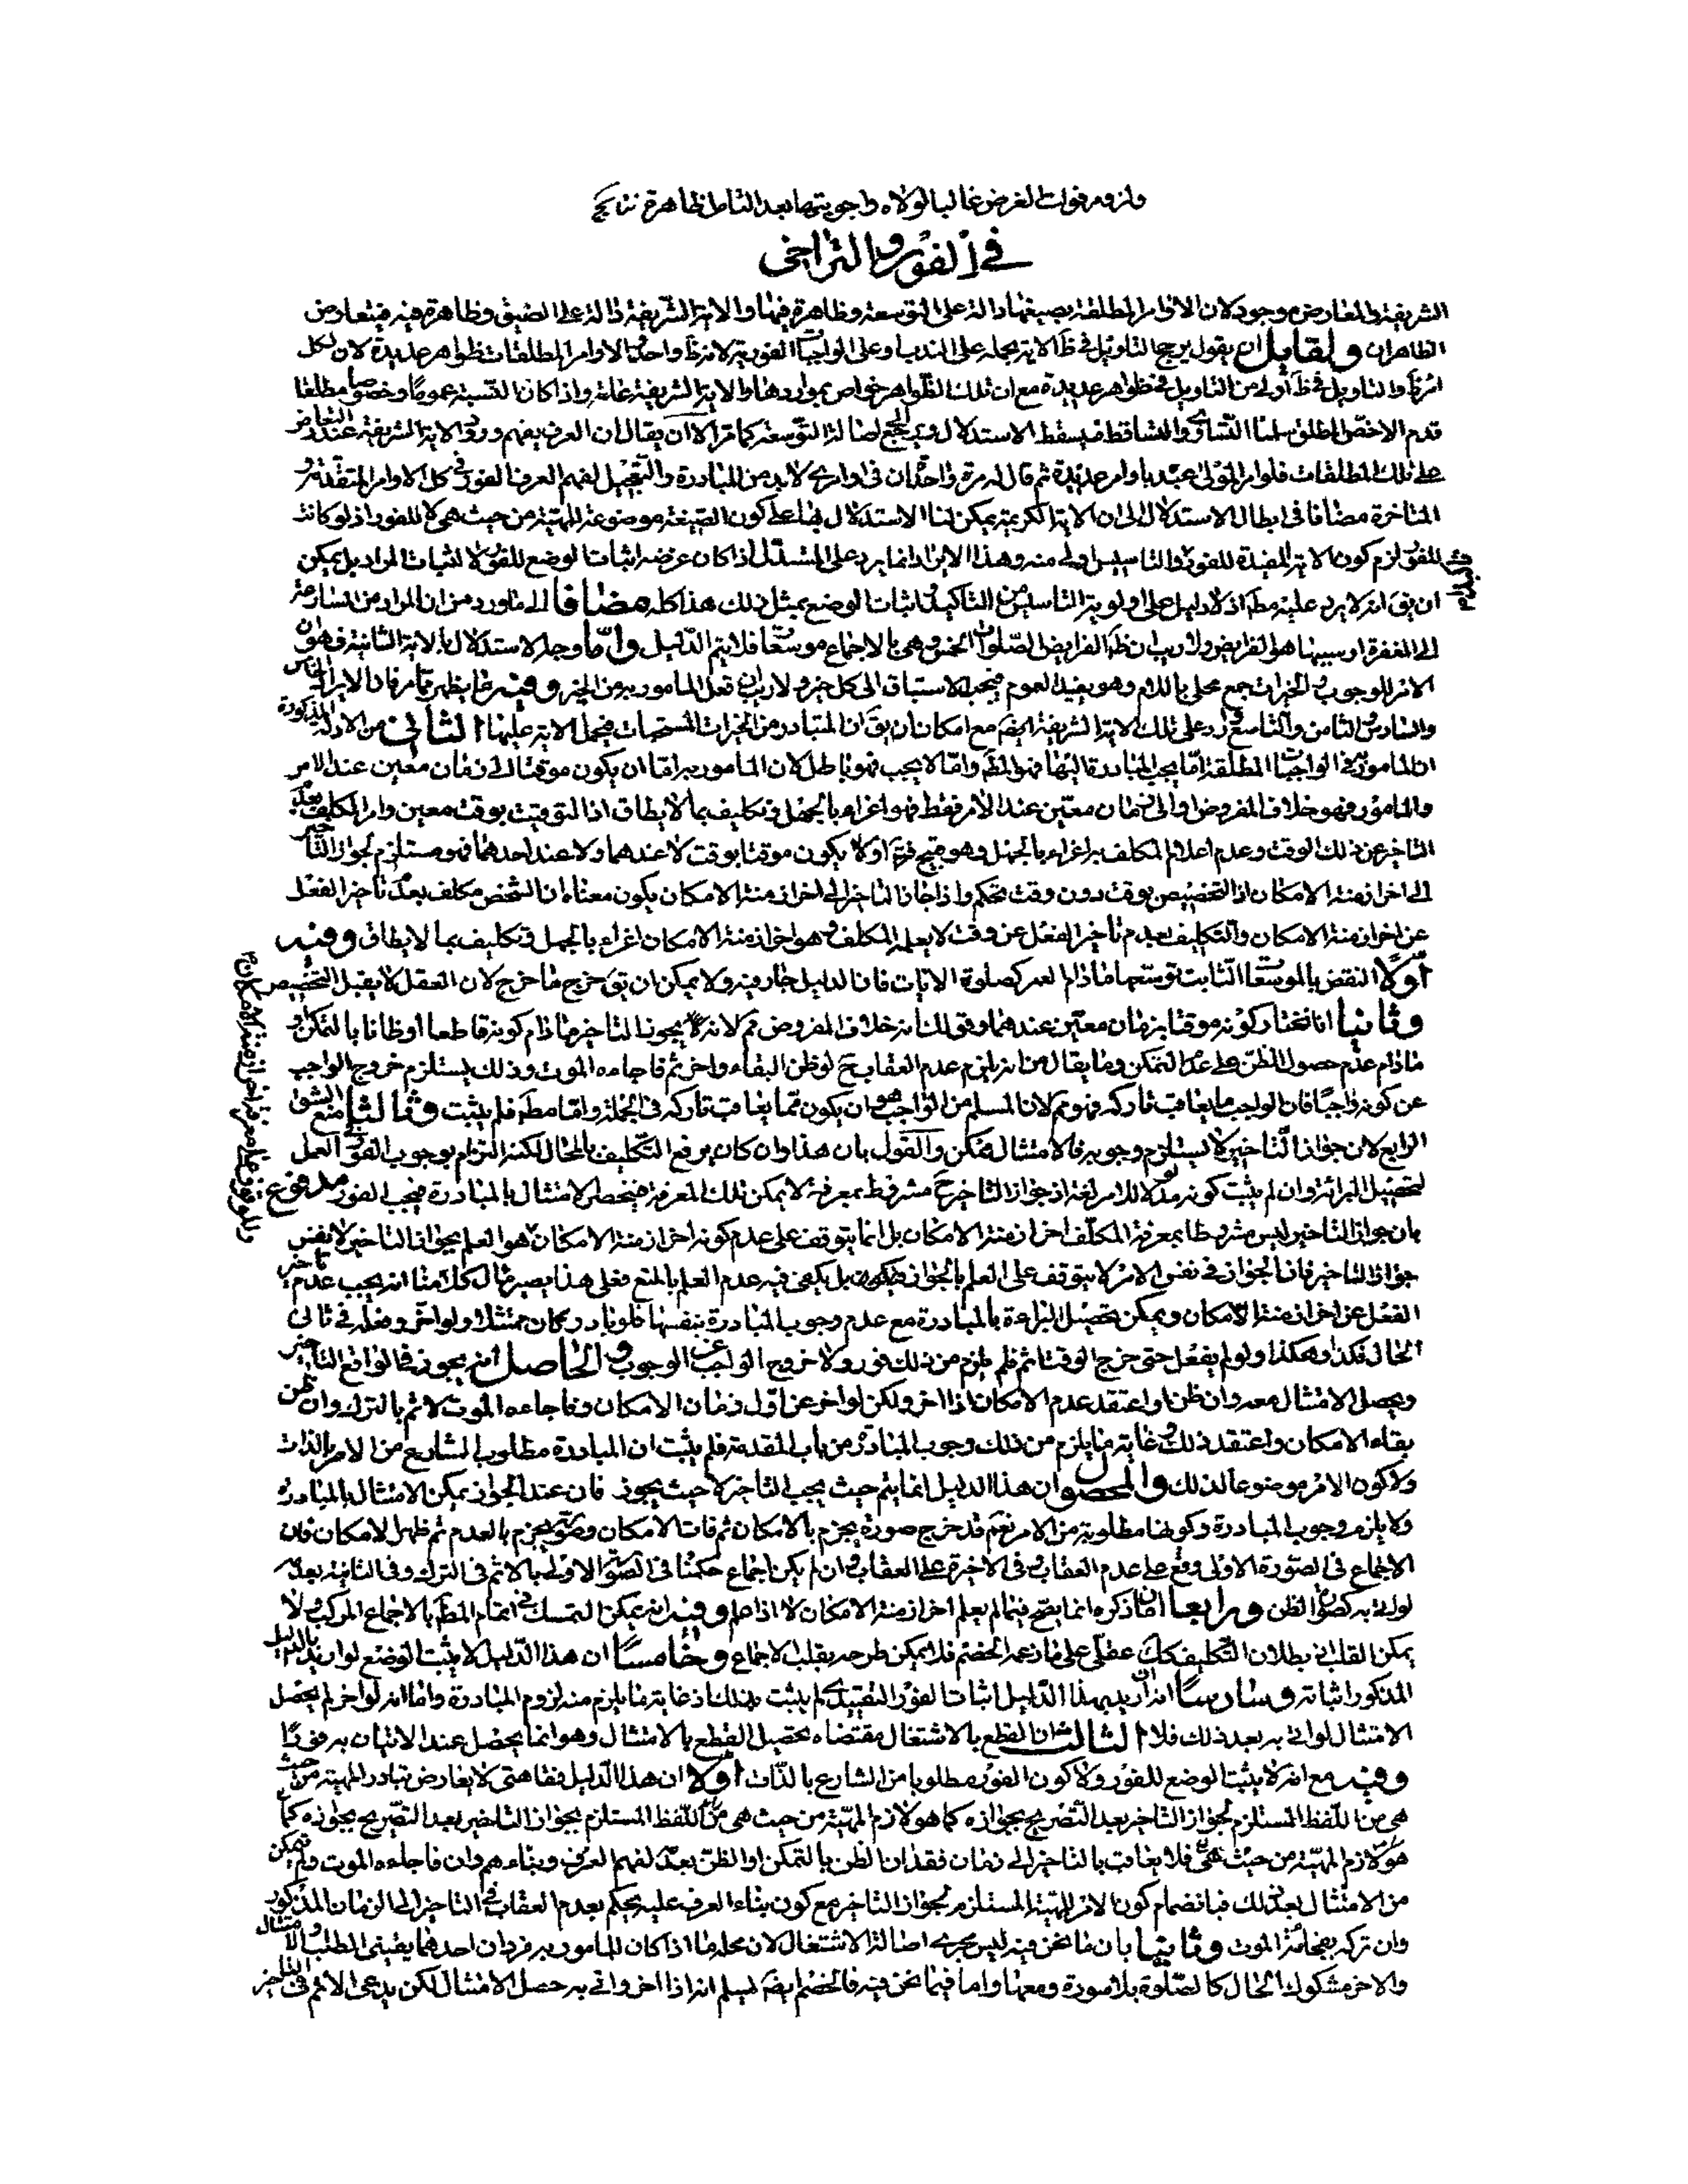 ولزوم فوات الغرض غالبا لولاه واجوبتها بعد التامل ظاهرة نتايج
في الفور والتراخي
الشريفة والمعارض موجود لان الاوامر المطلقة بصيغها دالة على التوسعة وظاهرة فيها والاية الشريفة دالة على الضيق وظاهرة فيه فيتعارض
الظاهران ولقايل ان يقول يرجح التاويل في ظ الاية بحمله على الندب او على الواجبات الفورية لانه ظ واحد والاوامر المطلقات ظواهر عديدة لان لكل
امر ظ والتاويل في ظ اولى من التاويل في ظواهر عديدة مع ان تلك الظواهر خواص بمواردها والاية الشريفة عامة واذا كان النسبة عموما وخصوصا مطلقا
قدم الاخص المطلق سلمنا التساوي والتساقط فيسقط الاستدلال ويرجع اصالة التوسعة كما مر الا ان يقال ان العرف يفهم ورود الاية الشريفة عند التعارض
على تلك المطلقات فلو امر المولى عبده باوامر عديدة ثم قال له مرة واحدة ان في اوامري لا بد من المبادرة والتعجيل لفهم العرف الفور في كل الاوامر المتقدمة و
المتاخرة مضافا في ابطال الاستدلال الى ان الاية الكريمة يمكن لنا الاستدلال بها على كون الصيغة موضوعة للمهية من حيث هي لا للفور اذ لو كانت
للفور لزم كون الاية المفيدة للفور والتاسيس اولى منه وهذا الايراد انما يرد على المستدل اذا كان غرضه اثبات الوضع للفور لا اثبات المراد بل يمكن
ان يق انه لا يرد عليه مط اذ لا دليل على اولوية التاسيس من التاكيد في اثبات الوضع بمثل ذلك هذا كله مضافا الى ما ورد من ان المراد من المسارعة
الى المغفرة او سببها هو الفرايض ولا ريب ان ظ الفرايض الصلوات الخمس وهي بالاجماع موسعة فلا يتم الدليل واما وجه الاستدلال بالاية الثانية فهو ان
الامر للوجوب والخيرات جمع محلى باللام وهو يفيد العموم فيجب الاستباق الى كل خير ولا ريب ان فعل المامور به من الخير وفيه ما يظهر مما مر فان الايراد الخامس
والسادس والثامن والتاسع وارد على تلك الاية الشريفة ايضم مع امكان ان يق ان المتبادر من الخيرات المستحبات فيحمل الاية عليها الثاني من الادلة المذكورة
ان المامور به في الواجبات المطلقة اما يجب المبادرة اليها فهو المط واما لا يجب فهو باطل لان المامور به اما ان يكون موقتا الى زمان معين عند الامر
والمامور فهو خلاف المفروض او الى زمان معين عند الامر فقط فهو اغراء بالجهل وتكليف بما لا يطاق اذ التوقيت بوقت معين وامر المكلف بعدم
التاخير عن ذلك الوقت وعدم اعلام المكلف به اغراء بالجهل وهو قبيح او لا يكون موقتا بوقت لا عندهما ولا عند احدهما فهو مستلزم لجواز التاخير
الى اخر ازمنة الامكان اذ التخصيص بوقت دون وقت تحكم واذا جاز التاخير الى اخر ازمنة الامكان يكون معناه ان الشخص مكلف بعدم تاخير الفعل
عن اخر ازمنة الامكان والتكليف بعدم تاخير الفعل عن وقت لا يعلمه المكلف وهو اخر ازمنة الامكان اغراء بالجهل وتكليف بما لا يطاق وفيه
اولا النقض بالموسعات الثابت توسعتها مادام العمر كصلوة الايات فان الدليل جار فيه ولا يمكن ان يق خرج ما خرج لان العقل لا يقبل التخصيص
وثانيا انا نختار كونه موقتا بزمان معين عندهما وقولك انه خلاف المفروض مم لانه يجوز التاخير مادام كونه قاطعا او ظانا بالتمكن او
مادام عدم حصول الظن على عدم التمكن وما يقال من انه يلزم عدم العقاب ح لو ظن البقاء واخر ثم فاجاءه الموت وذلك يستلزم خروج الواجب
عن كونه واجبا فان الواجب ما يعاقب تاركه فهو مم لان المسلم من الواجب هو ان يكون مما يعاقب تاركه في الجملة واما مط فلم يثبت وثالثا منع الشق
الرابع لان جواز التاخير لا يستلزم وجوبه فالامتثال ممكن والقول بان هذا وان كان يرفع التكليف بالمحال لكنه التزام بوجوب الفور في العمل
لتحصيل البرائة وان لم يثبت كونه مدلولا للامر لغة اذ جواز التاخير ح مشروط بمعرفة لا يمكن تلك المعرفة فينحصر الامتثال بالمبادرة فيجب الفور مدفوع
بان جواز التاخير ليس مشروطا بمعرفة المكلف اخر ازمنة الامكان بل انما يتوقف على عدم كونه اخر ازمنة الامكان هو العلم بجواز التاخير لا نفس
جواز التاخير فان الجواز في نفس الامر لا يتوقف على العلم بالجواز بل يكفي فيه عدم العلم بالمنع فعلى هذا يصير مال كلامنا انه يجب عدم تاخير
الفعل عن اخر ازمنة الامكان ويمكن تحصيل البراءة بالمبادرة مع عدم وجوب المبادرة بنفسها فلو بادر كان ممتثلا ولو اخر وفعله في ثاني
الحال فكذا وهكذا ولو لم يفعل حتى خرج الوقت اثم فلم يلزم من ذلك فور ولا خروج الواجب عن الوجوب والحاصل انه يجوز في الواقع التاخير
ويحصل الامتثال معه وان ظن او اعتقد عدم الامكان اذا اخر ولكن لو اخر عن اول زمان الامكان وفاجاءه الموت لاثم بالترك وان ظن
بقاء الامكان واعتقد ذلك وغاية ما يلزم من ذلك وجوب المبادرة من باب المقدمة فلم يثبت ان المبادرة مطلوب الشارع من الامر بالذات
ولا كون الامر موضوعا لذلك والمحصول ان هذا الدليل انما يتم حيث يجب التاخير لا حيث يجوز فان عند الجواز يمكن الامتثال بالمبادرة
ولا يلزم وجوب المبادرة وكونها مطلوبة من الامر نعم قد خرج صورة يجزم بالامكان ثم فات الامكان وصورة يجزم بالعدم ثم ظهر الامكان فان
الاجماع في الصورة الاولى وقع على عدم العقاب وفي الاخيرة على العقاب وان لم يكن اجماع حكمنا في الصورة الاولى بالاثم في الترك وفي الثانية بعدمه
لو اتى به كصورتي الظن ورابعا ان ما ذكره انما يصح فيما لم يعلم اخر ازمنة الامكان لا اذا علم وفيه انه يمكن التمسك في اتمام المط بالاجماع المركب ولا
يمكن القلب اذ بطلان التكليف كك عقلي على ما زعمه الخصم فلا يمكن طرحه بقلب الاجماع وخامسا ان هذا الدليل لا يثبت الوضع لو اريد بالدليل
المذكور اثباته وسادسا انه ان اريد بهذا الدليل اثبات الفور التقييدي لم يثبت بذلك اذ غاية ما يلزم منه لزوم المبادرة واما انه لو اخر لم يحصل
الامتثال لو اتى به بعد ذلك فلا الثالث ان القطع بالاشتغال مقتضاه تحصيل القطع بالامتثال وهو انما يحصل عند الاتيان به فورا
وفيه مع انه لا يثبت الوضع للفور ولا كون الفور مطلوبا من الشارع بالذات اولا ان هذا الدليل فقاهتي لا يعارض تبادر المهية من حيث
هي من اللفظ المستلزم لجواز التاخير بعد التصريح بجوازه كما هو لازم المهية من حيث هي من اللفظ المستلزم بجواز التاخير بعد التصريح بجوازه كما
هو لازم المهية من حيث هي فلا يعاقب بالتاخير الى زمان فقدان الظن بالتمكن او الظن بعدمه لفهم العرف وبناءهم وان فاجاءه الموت ولم يتمكن
من الامتثال بعد ذلك فبانضمام كون الامر للمهية المستلزم لجواز التاخير مع كون بناء العرف عليه يحكم بعدم العقاب في التاخير الى الزمان المذكور
وان تركه بمفاجاة الموت وثانيا بان ما نحن فيه ليس مجرى اصالة الاشتغال لان محله ما اذا كان للمامور به فردان احدهما يقيني المطلوب والامتثال
والاخر مشكوك الحال كالصلوة بلا سورة ومعها واما فيما نحن فيه فالخصم ايضم يسلم انه اذا اخر واتى به حصل الامتثال لكن يدعي الاثم في التاخير